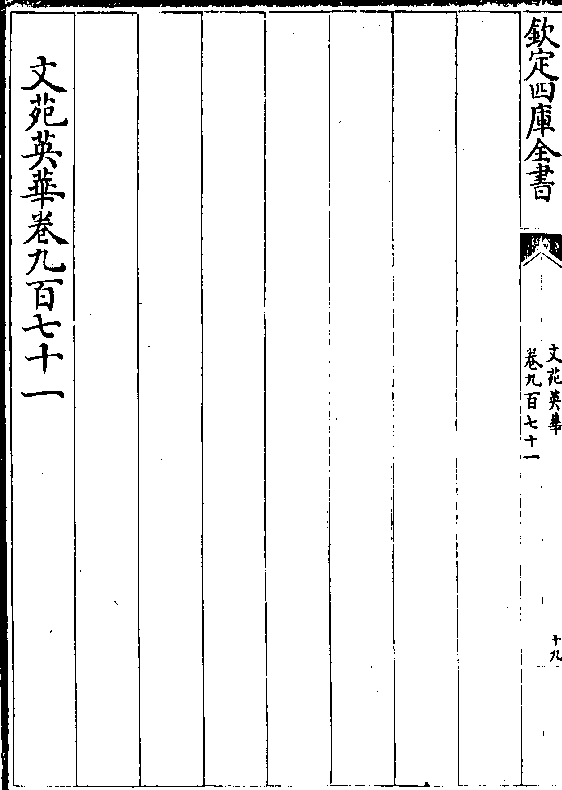 欽定四庫全書
文苑英華
卷九百七十一
十九
文苑英華卷九百七十一